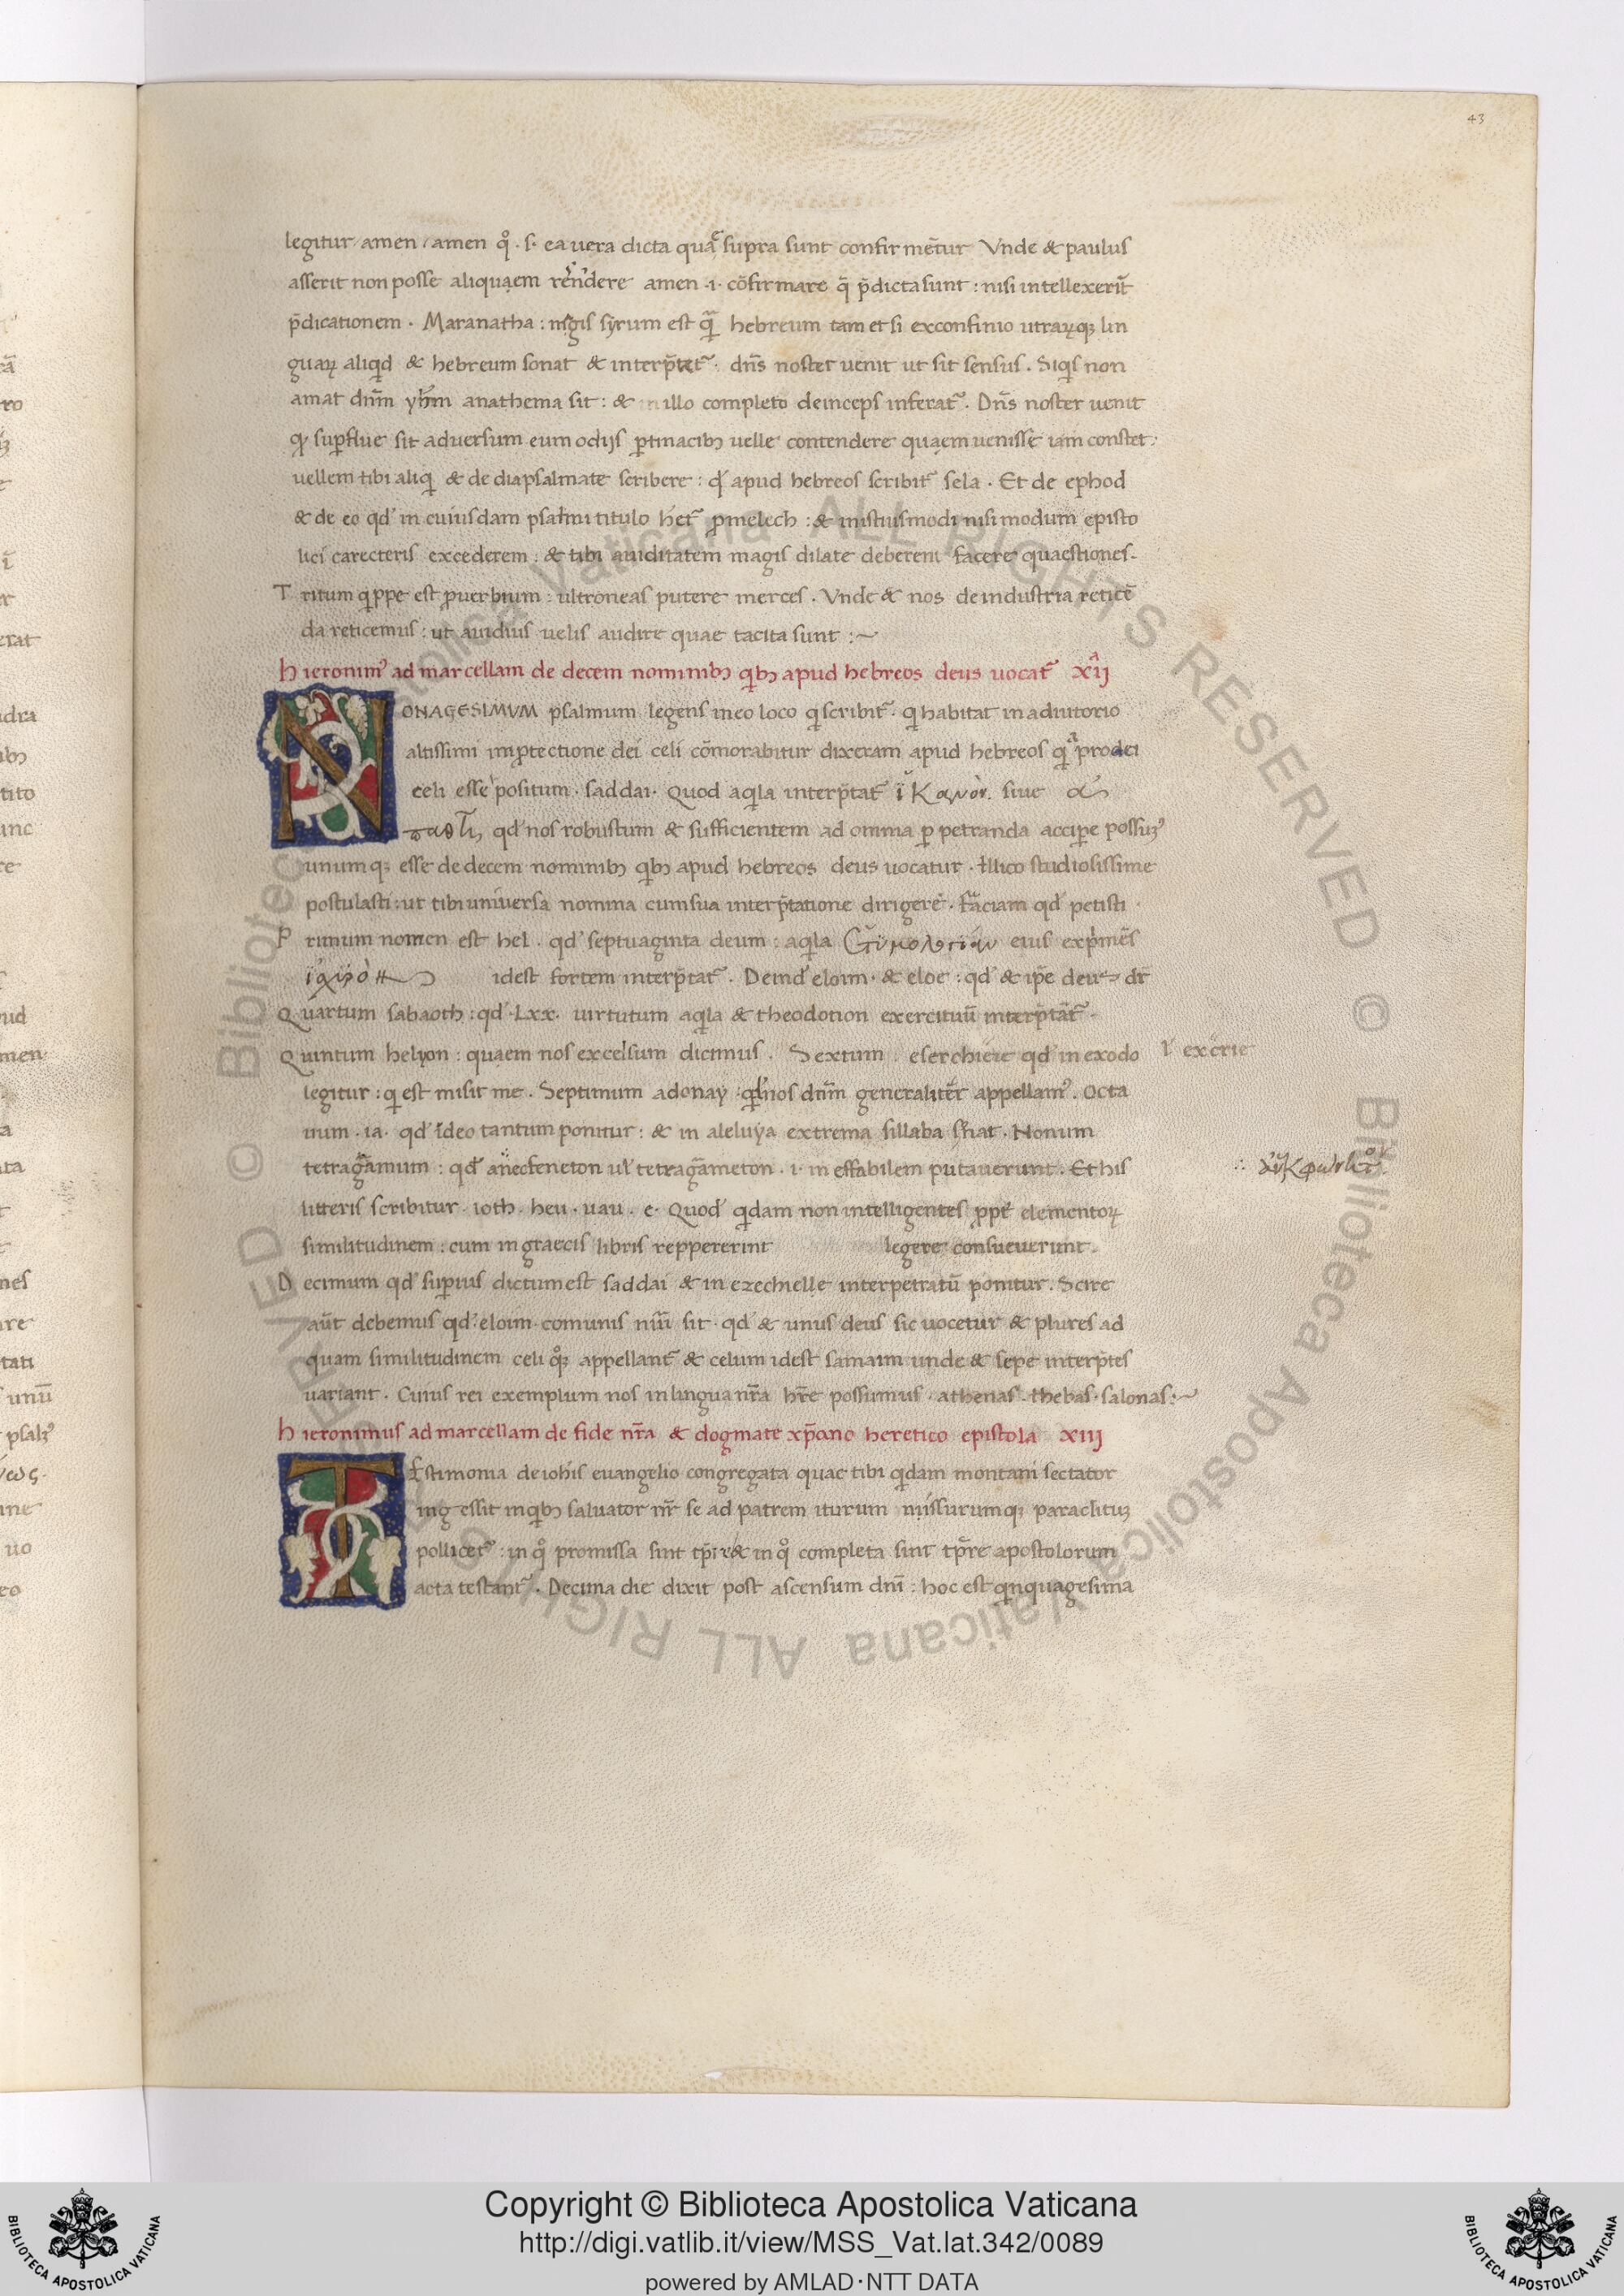 43
legitur amen / amen qͦ · s· ea uera dicta quae supra sunt confirmẽtur Vnde & paulus
asserit non posse aliquaem respondere amen ·i· cõfirmare q̃ p̄dicta sunt : nisi intellexerit̃
p̄dicationem · Maranatha : magis syrum est q̃ hebreum tam et si exconfinio utrarumq; lin
guaꝝ aliqd & hebreum sonat & interp̄tet᷑ · dñs noster uenit ut sit sensus . Siqis non
amat dñm yhm anathema sit : & illo completo deinceps inferat᷑ . Dñs noster uenit
qͥ supflue sit aduersum eum odijs ptinacibꝫ uelle contendere quaem uenisse iam constet·
uellem tibi aliqͥ & de diapsalmate scribere : qd apud hebreos scribit᷑ sela · Et de ephod
& de eo qd in cuiusdam psalmi titulo het᷑ pmelech : & in istiusmodi nisi modum episto
lici carecteris excederem : & tibi auiditatem magis dilate deberent facere quaestiones·
T ritum qppe est puerbium : ultroneas putere merces . Vnde & nos de industria reticẽ
da reticemus : ut auidius uelis audire quae tacita sunt :~
hieronimꝰ ad marcellam de decem nominibꝫ qbꝫ apud hebreos deus uocat᷑ xij
NONAGESIMVM psalmum legens in eo loco q scribit᷑ · q habitat in adiutorio
altissimi in ptectione dei celi cõmorabitur dixeram apud hebreos q pro dei
celi esse positum · saddai · Quod aqila interp̄tat᷑ ϊκανον. siue
qd nos robustum & sufficientem ad omnia ppetranda accipe possuꝰ
unumq; esse de decem nominibꝫ qbꝫ apud hebreos deus uocatur . Illico studiosissime
postulasti : ut tibi uniuersa nomina cum sua interp̄tatione dirigere · faciam qd petisti ·
P rimum nomen est hel . qd septuaginta deum : aqila eius exp̄mẽs
idest fortem interp̄tat᷑ . Deind eloim · & eloe : qd & ip̄e deus dr̃
Quartum sabaoth : qd ·Lxx· uirtutum aqila & theodotion exercituũ interp̄tãt᷑·
Quintum helyon : quaem nos excelsum dicimus . Sextum eserchieie qd in exodo ł excrie
legitur : q est misit me . Septimum adonay qd nos dñm generaliter appellamꝰ . Octa
uum · ia · qd ideo tantum ponitur : & in aleluya extrema sillaba sonat . Nonum
tetragãmum : qd anecfeneton ul tetragãmeton · i· ineffabilem putauerunt . Et his
litteris scribitur · ioth · heu · uau · e · Quod qdam non intelligentes ppt elementoꝝ
similitudinem : cum in graecis libris reppererint legere consueuerunt·
Decimum qd supius dictum est saddai & in ezechielle interpetratũ ponitur . Scire
aũt debemus qd eloim · comunis nũi sit · qd & unus deus sic uocetur & plures ad
quam similitudinem celi qͦꝫ appellant᷑ & celum idest samaim unde & sepe interp̄tes
uariant . Cuius rei exemplum nos in lingua nr̃a hr̃e possumus · athenas · thebas · salonas :~
hieronimus ad marcellam de fide nr̃a & dogmate xp̄ano heretico epistola xiij
TEstimonia de iohis euangelio congregata quae tibi qdam montani sectator
ingessit in qbꝫ saluator nr̃ se ad patrem iturum missurumq; paraclituꝫ
pollicet᷑ : in qͦ promissa sint tp̄re & in qͦ completa sint tp̄re apostolorum
acta testant᷑ . Decima die dixit post ascensum dñi : hoc est qnquagesima
© Biblioteca Apostolica Vaticana ALL RIGHTS RESERVED
Copyright © Biblioteca Apostolica Vaticana
http://digi.vatlib.it/view/MSS_Vat.lat.342/0089
powered by AMLAD·NTT DATA
BIBLIOTECA APOSTOLICA VATICANA
BIBLIOTECA APOSTOLICA VATICANA